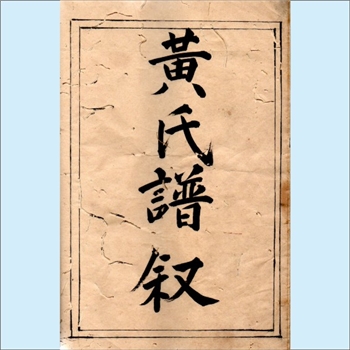 黃氏譜叙